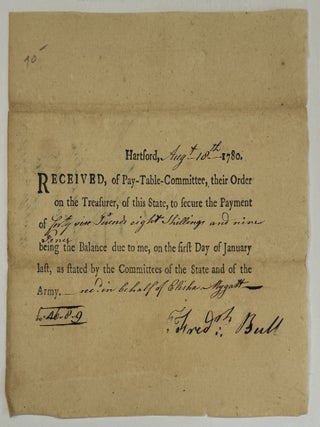 Hartford, Augt 18th 1780.
RECEIVED, of Pay-Table-Committee, their Order
on the Treasurer, of this State, to secure the Payment
of Pounds eight Shillings and nine
Pence
being the Balance due to me, on the first Day of January
last, as stated by the Committees of the State and of the
Army. recd in behalf of Elisha Mygatt
46-8-9
Fredk Bull